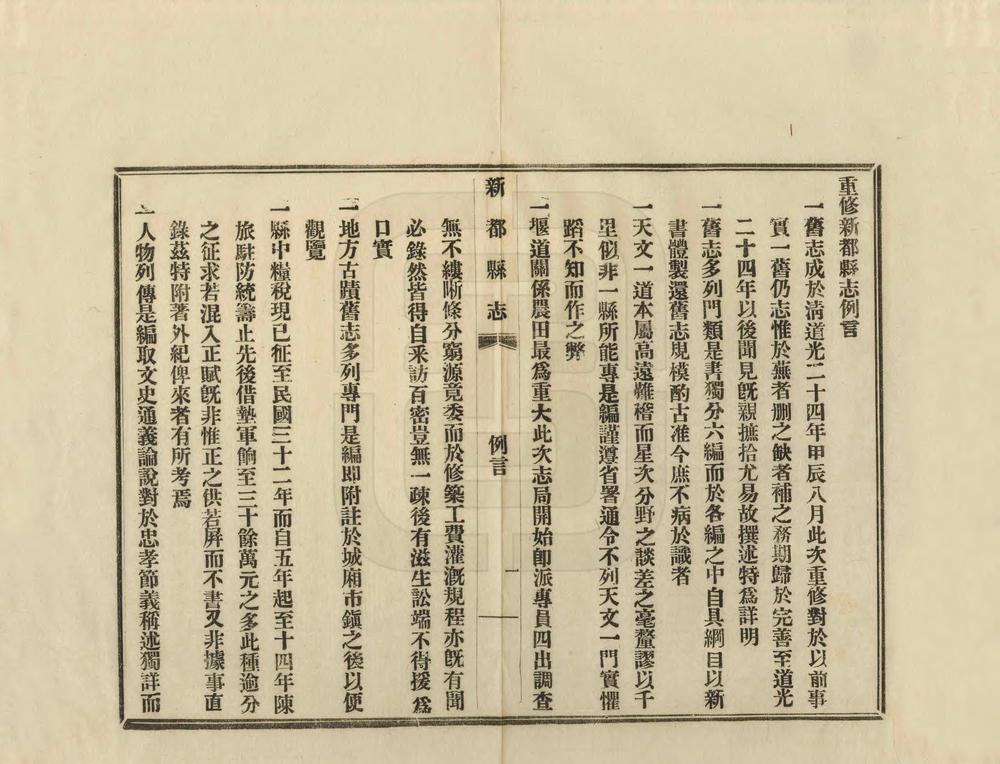 重修新都縣志例言
一舊志成於清道光二十四年甲辰八月此次重修對於以前事
實一舊仍志惟於蕪者删之缺者補之務期歸於完善至道光
二十四年以後聞見旣親摭拾尤易故撰述特爲詳明
一舊志多列門類是書獨分六編而於各編之中自具綱目以新
書體製還舊志規模酌古准今庶不病於識者
一天文一道本屬高遠難稽而星次分野之談差之毫釐謬以千
里似非一縣所能專是編謹遵省署通令不列天文一門實懼
蹈不知而作之弊
一堰道關係農田最爲重大此次志局開始卽派專員四出調查
新都縣志
例言
一
無不縷晰條分窮源竟委而於修築工費灌漑規程亦旣有聞
必錄然皆得自采訪百密豈無一疎後有滋生訟端不得援爲
口實
一地方古蹟舊志多列專門是編即附註於城廂市鎭之後以便
觀覽
一縣中糧稅現已征至民國三十二年而自五年起至十四年陳
旅駐防統籌止先後借墊軍餉至三十餘萬元之多此種逾分
之征求若混入正賦旣非惟正之供若屏而不書又非據事直
錄茲特附著外紀俾來者有所考焉
一人物列傳是編取文史通義論說對於忠孝節義稱述獨詳而